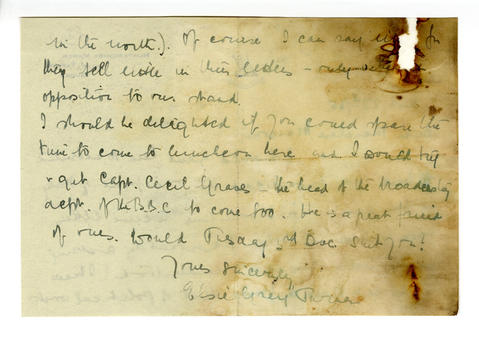 in the north.). Of course I can say for
they tell little in their letters - only
opposition to our stand.
I should be delighted if you could spare the
time to come to luncheon here and I would try
& get Capt. Cecil Graves - the head of the broadcasting
dept. of the B.B.C to come too. He is a great friend
of ours. Would Tuesday 3rd Dec. suit you?
Yours sincerely
Elsie Grey Turner